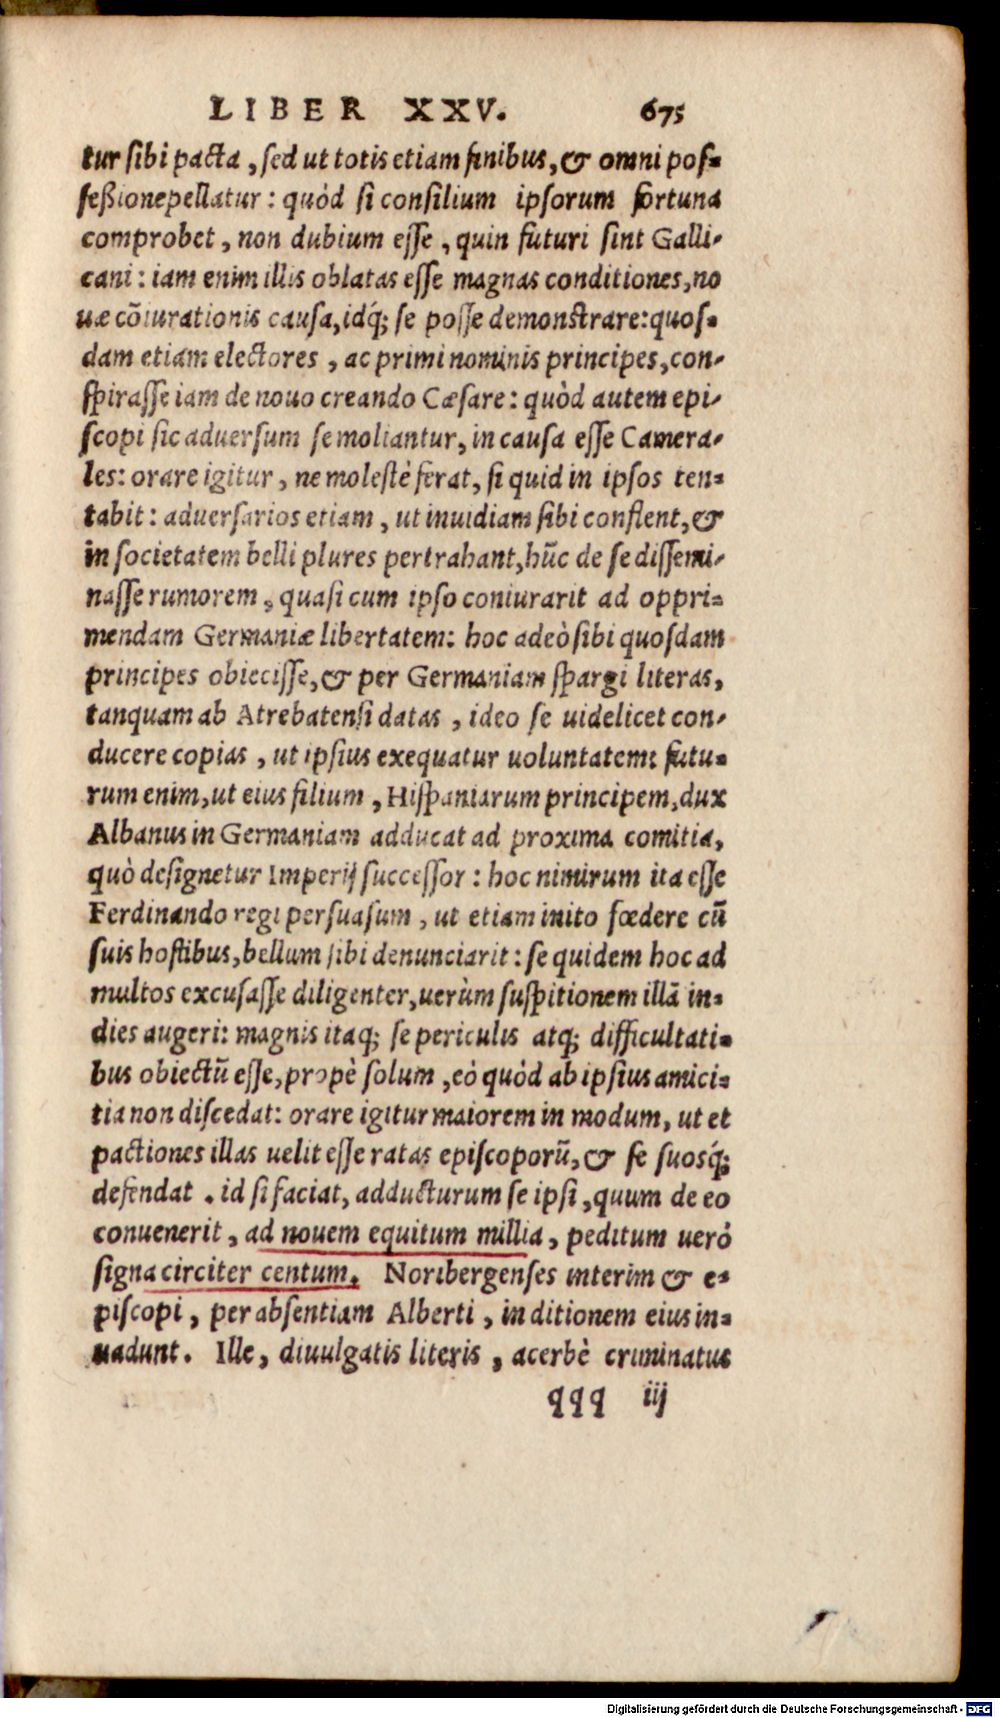 LIBER XXV. 675
tur sibi pacta, sed ut totis etiam finibus, & omni pos-
seßione pellatur: quòd si consilium ipsorum fortuna
comprobet, non dubium esse, quin futuri sint Galli-
cani: iam enim illis oblatas esse magnas conditiones, no
uæ cōiurationis causa, idq́; se posse demonstrare: quos-
dam etiam electores, ac primi nominis principes, con-
spirasse iam de nouo creando Cæsare: quòd autem epi-
scopi sic aduersum se moliantur, in causa esse Camera-
les: orare igitur, ne molestè ferat, si quid in ipsos ten-
tabit: aduersarios etiam, ut inuidiam sibi conflent, &
in societatem belli plures pertrahant, hūc de se dissemi-
nasse rumorem, quasi cum ipso coniurarit ad oppri-
mendam Germaniæ libertatem: hoc adeò sibi quosdam
principes obiecisse, & per Germaniam spargi literas,
tanquam ab Atrebatensi datas, ideo se uidelicet con-
ducere copias, ut ipsius exequatur uoluntatem: futu-
rum enim, ut eius filium, Hispaniarum principem, dux
Albanus in Germaniam adducat ad proxima comitia,
quò designetur Imperij successor: hoc nimirum ita esse
Ferdinando regi persuasum, ut etiam inito fœdere cū
suis hostibus, bellum sibi denunciarit: se quidem hoc ad
multos excusasse diligenter, uerùm suspitionem illā in-
dies augeri: magnis itaq; se periculis atq; difficultati-
bus obiectū esse, propè solum, eò quòd ab ipsius amici-
tia non discedat: orare igitur maiorem in modum, ut et
pactiones illas uelit esse ratas episcoporū, & se suosq́;
defendat. id si faciat, adducturum se ipsi, quum de eo
conuenerit, ad nouem equitum millia, peditum uerò
signa circiter centum. Noribergenses interim & e-
piscopi, per absentiam Alberti, in ditionem eius in-
uadunt. Ille, diuulgatis literis, acerbè criminatus
qqq iij
Digitalisierung gefördert durch die Deutsche Forschungsgemeinschaft - DFG